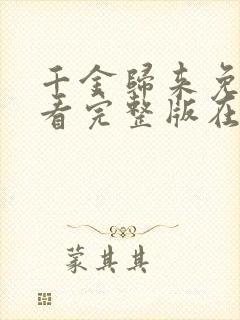 千金歸来免
看完整版在
蒙其其